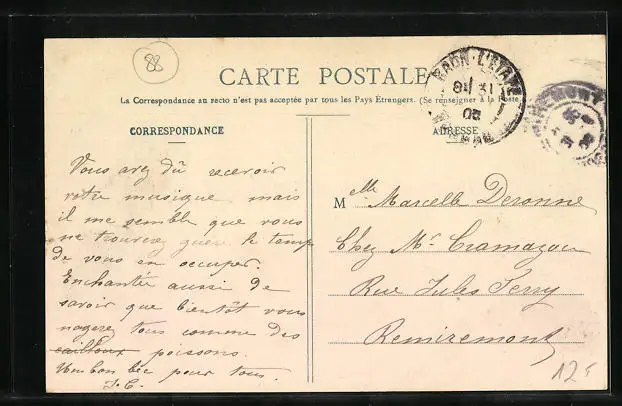 88
CARTE POSTALE
La Correspondance au recto n'est pas acceptée par tous les Pays Étrangers. (Se renseigner à la Poste
CORRESPONDANCE
ADRESSE
RAON-L'ETAPE
Vous avez dû recevoir
votre musique mais
il me semble que vous
ne trouverez guère le temps
de vous en occuper.
Enchantée aussi de
savoir que bientôt vous
nagerez tous comme des
cailloux poissons.
Un bon bec pour tous.
J.C.
Melle Marcelle Deronne
Chez Mr Cramazou
Rue Jules Ferry
Remiremont